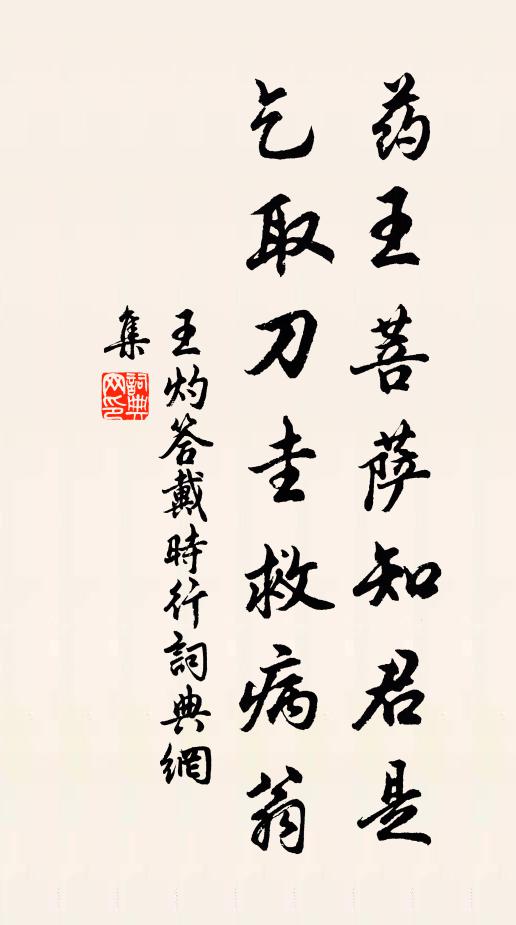 药王菩萨知君是
乞取刀圭救病翁
王灼答戴時行詞典網
集
詞典
网印